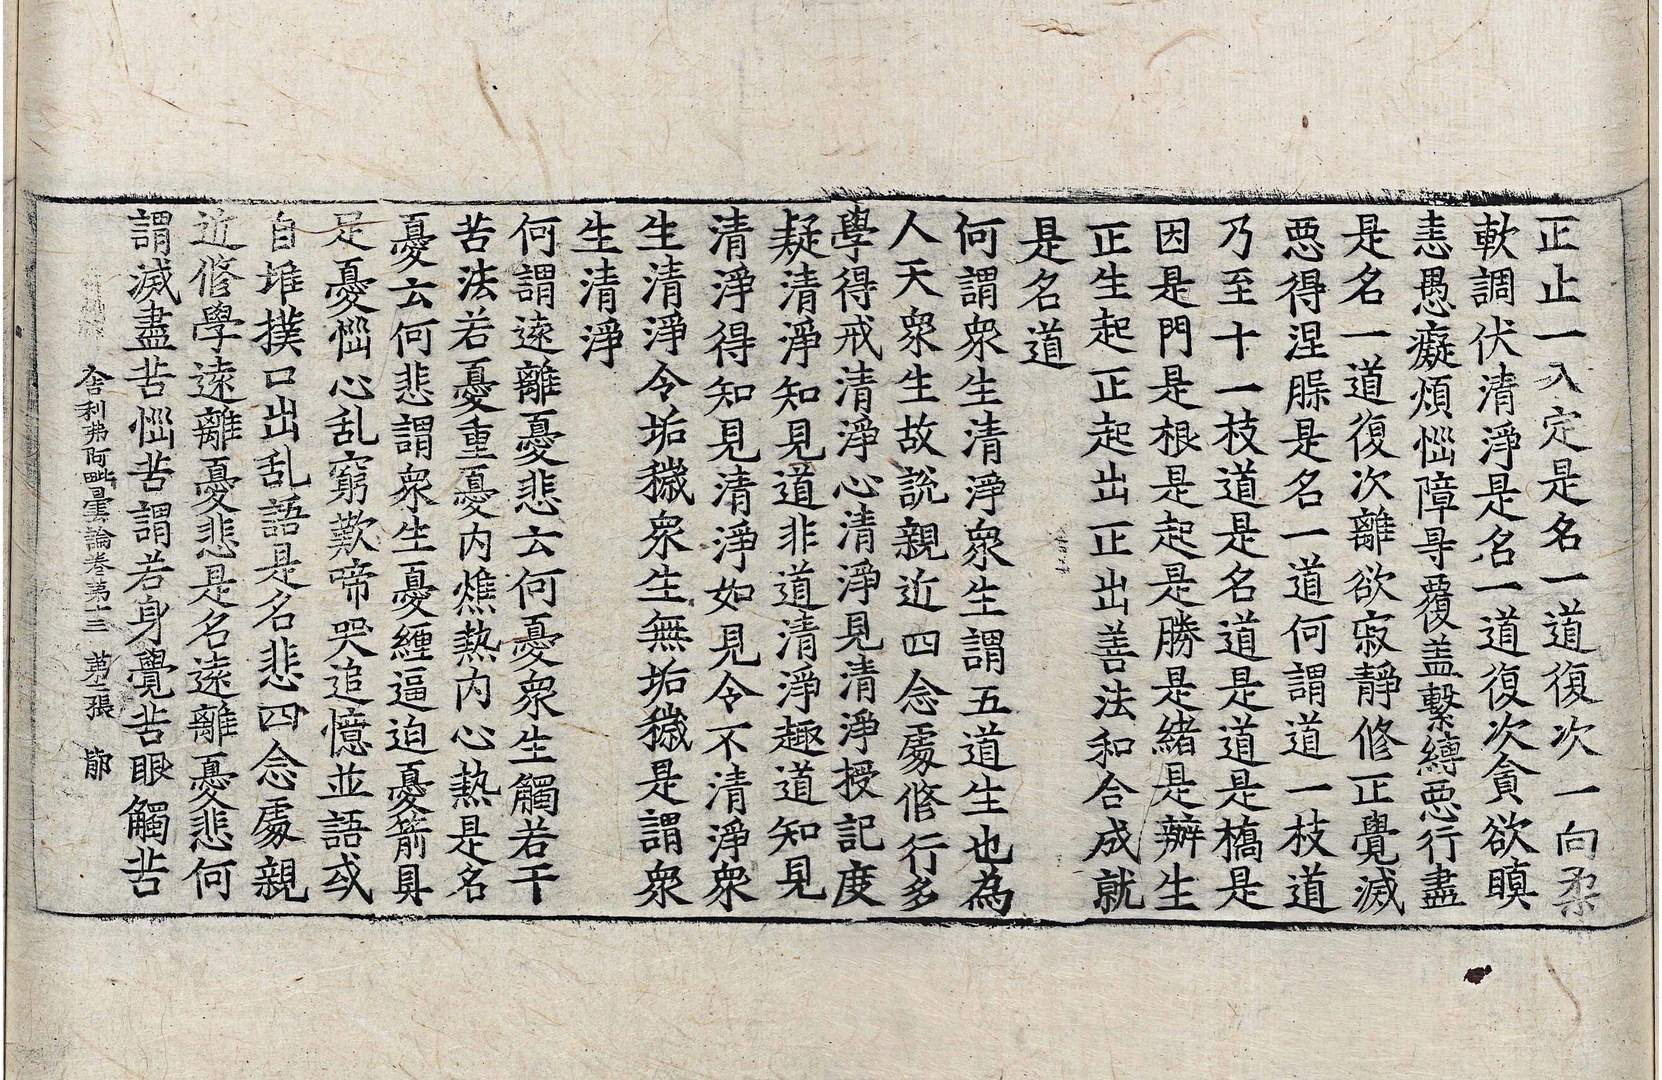 正止一入定是名一道復次一向柔
軟調伏清淨是名一道復次貪欲瞋
恚愚癡煩惱障㝵覆盖繫縛惡行盡
是名一道復次離欲寂靜修正覺滅
惡得涅㬌是名一道何謂道一枝道
乃至十一枝道是名道是道是橋是
因是門是根是起是勝是緒是辦生
正生起正起出正出善法和合成就
是名道
何謂衆生清淨衆生謂五道生也為
人天衆生故說親近四念處修行多
學得戒清淨心清淨見清淨授記度
疑清淨知見道非道清淨趣道知見
清淨得知見清淨如見令不清淨衆
生清淨令垢穢衆生無垢穢是謂衆
生清淨
何謂遠離憂悲云何憂衆生觸若干
苦法若憂重憂内燋熱内心熱是名
憂云何悲謂衆生憂纏逼迫憂箭具
足憂惱心乱窮歎啼哭追憶並語或
自堆撲口出乱語是名悲四念處親
近修學遠離憂悲是名遠離憂悲何
謂滅盡苦惱苦謂若身覺苦眼觸苦
舍利弗阿毗曇論卷第十三 第二張 節